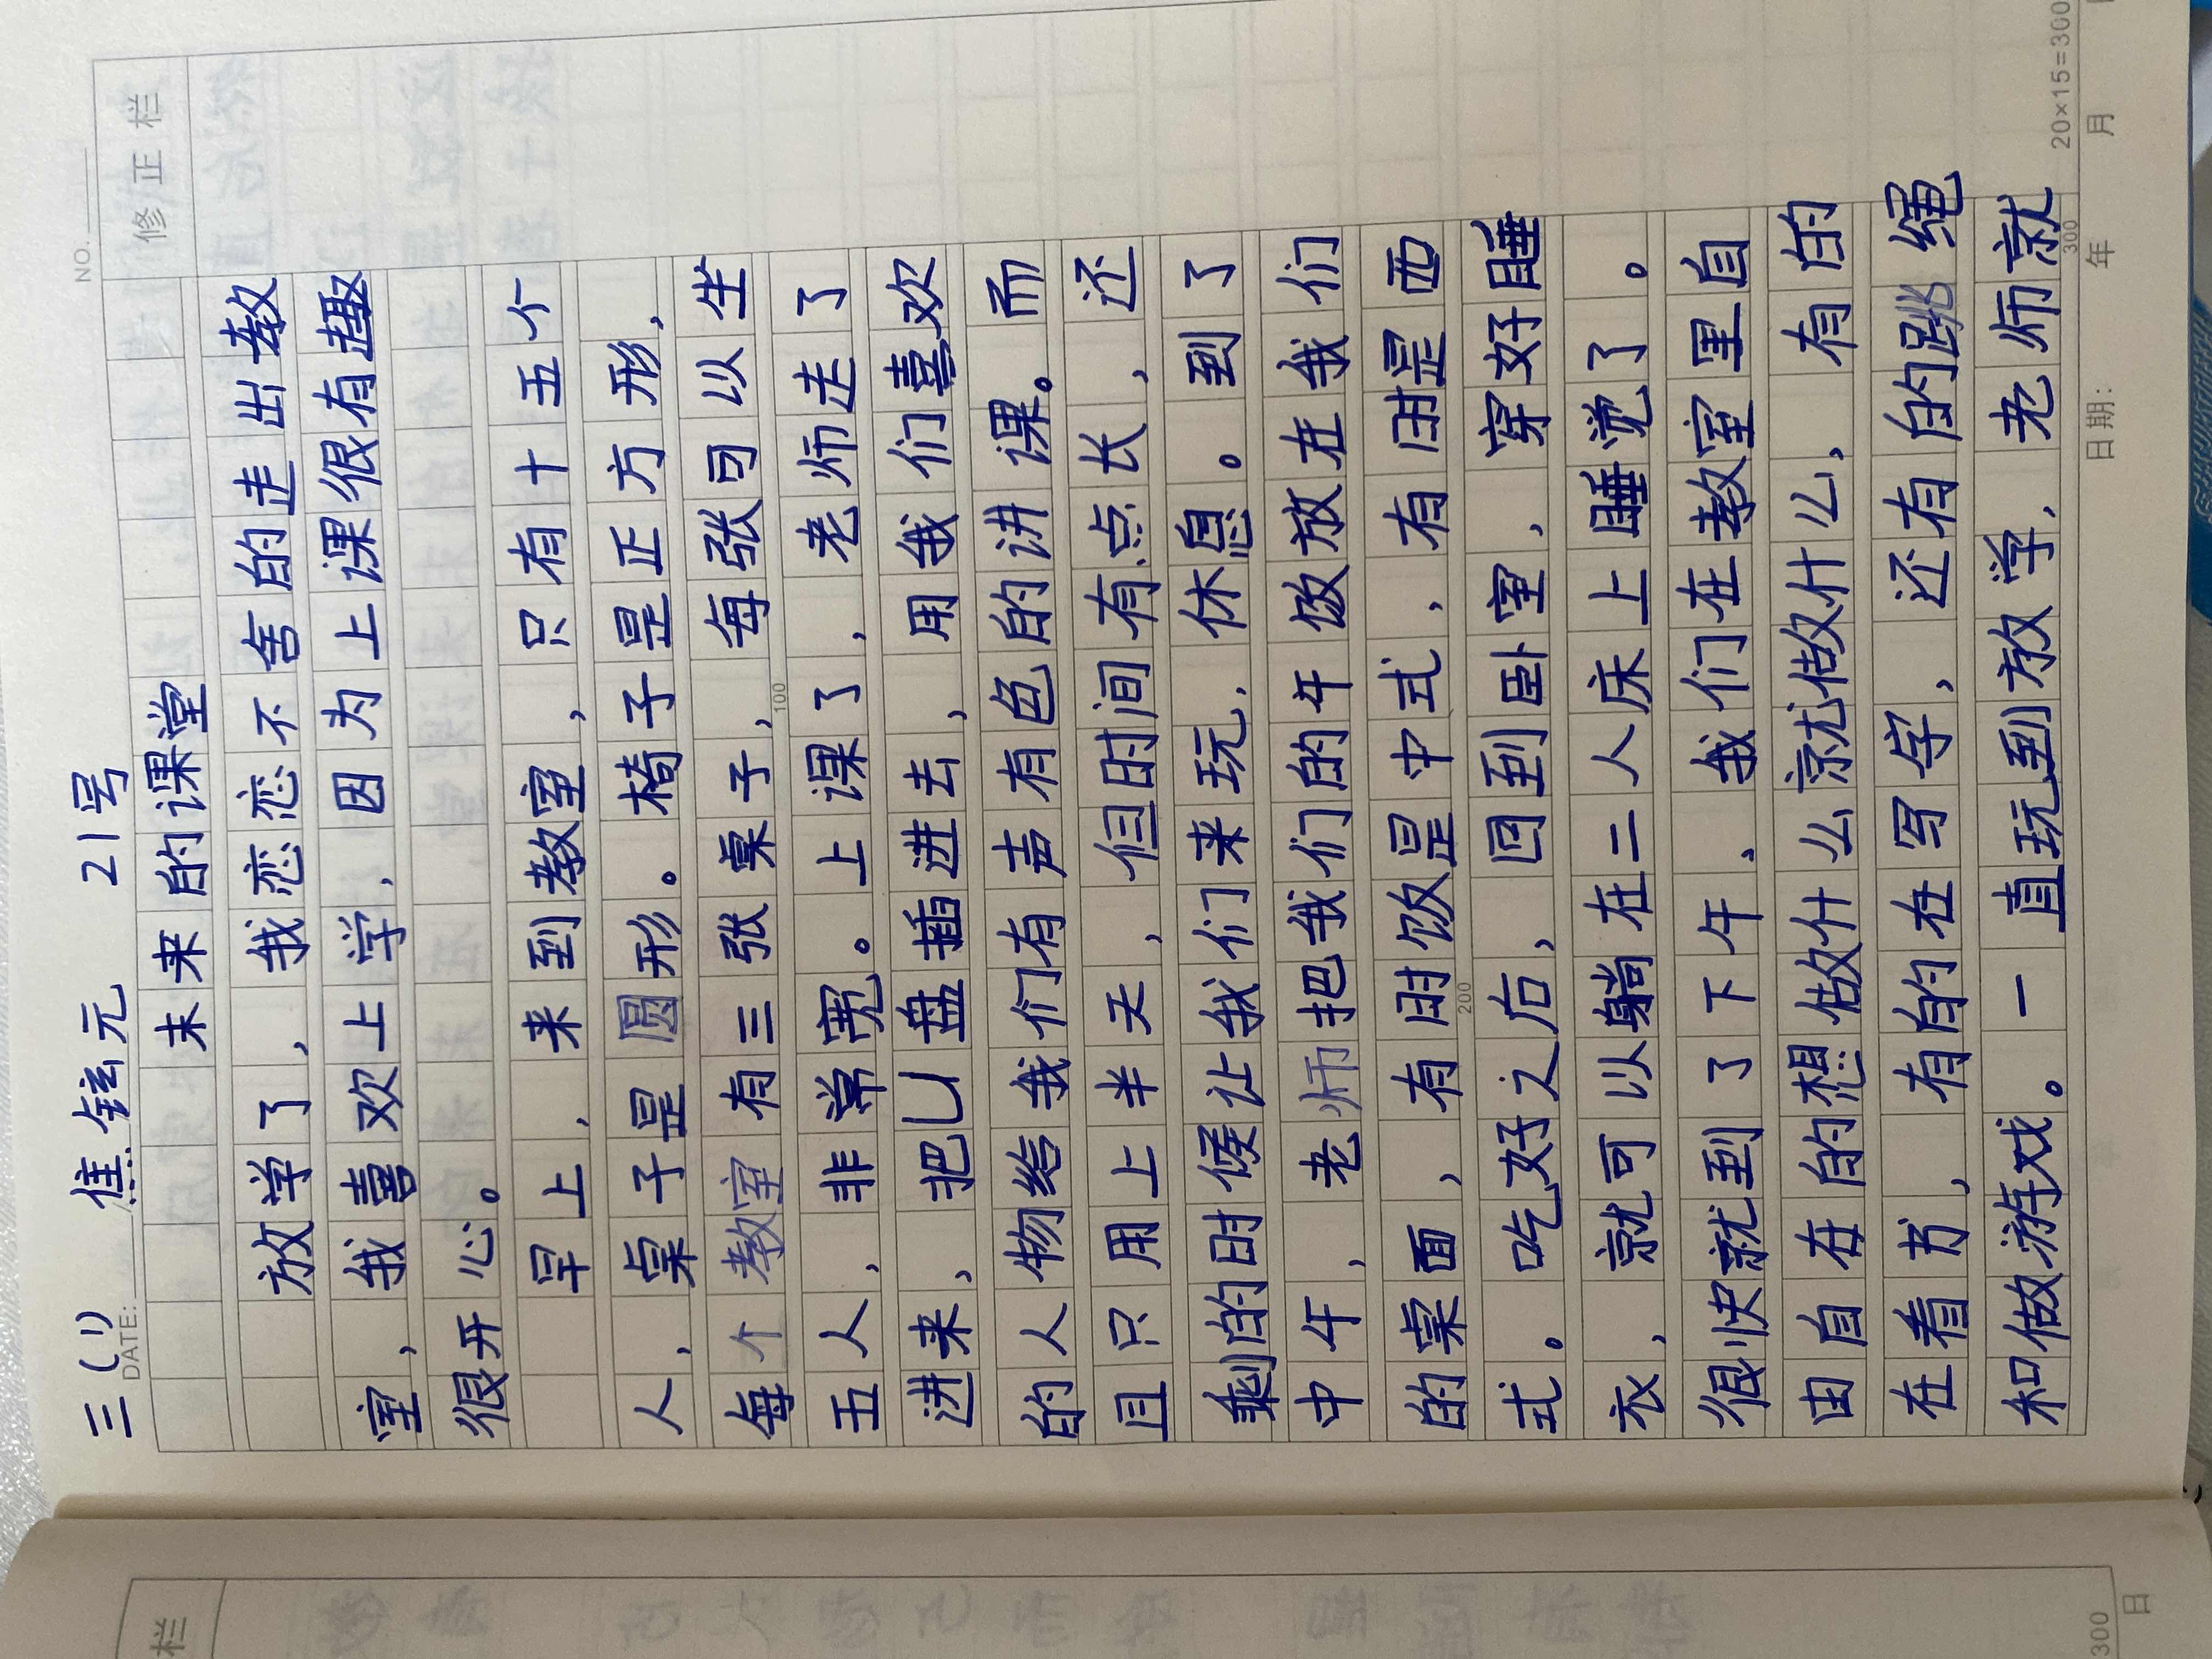 NO.
三(1) 焦铉元 21号
DATE:
修正栏
未来的课堂
放学了，我恋恋不舍的走出教
室，我喜欢上学，因为上课很有趣
很开心。
早上，来到教室，只有十五个
人，桌子是圆形。椅子是正方形，
每个教室有三张桌子，每张可以坐
100
五人，非常宽。上课了，老师走了
进来，把U盘插进去，用我们喜欢
的人物给我们有声有色的讲课。而
且只用上半天，但时间有点长，还
剩的时候让我们来玩，休息。到了
中午，老师把我们的午饭放在我们
的桌面，有时饭是中式，有时是西
200
式。吃好之后，回到卧室，穿好睡
衣，就可以躺在二人床上睡觉了。
很快就到了下午，我们在教室里自
由自在的想做什么就做什么，有的
在看书，有的在写字，还有的跳绳
和做游戏。一直玩到放学，老师就
300
20×15=300
日期: 年 月
栏
300
日